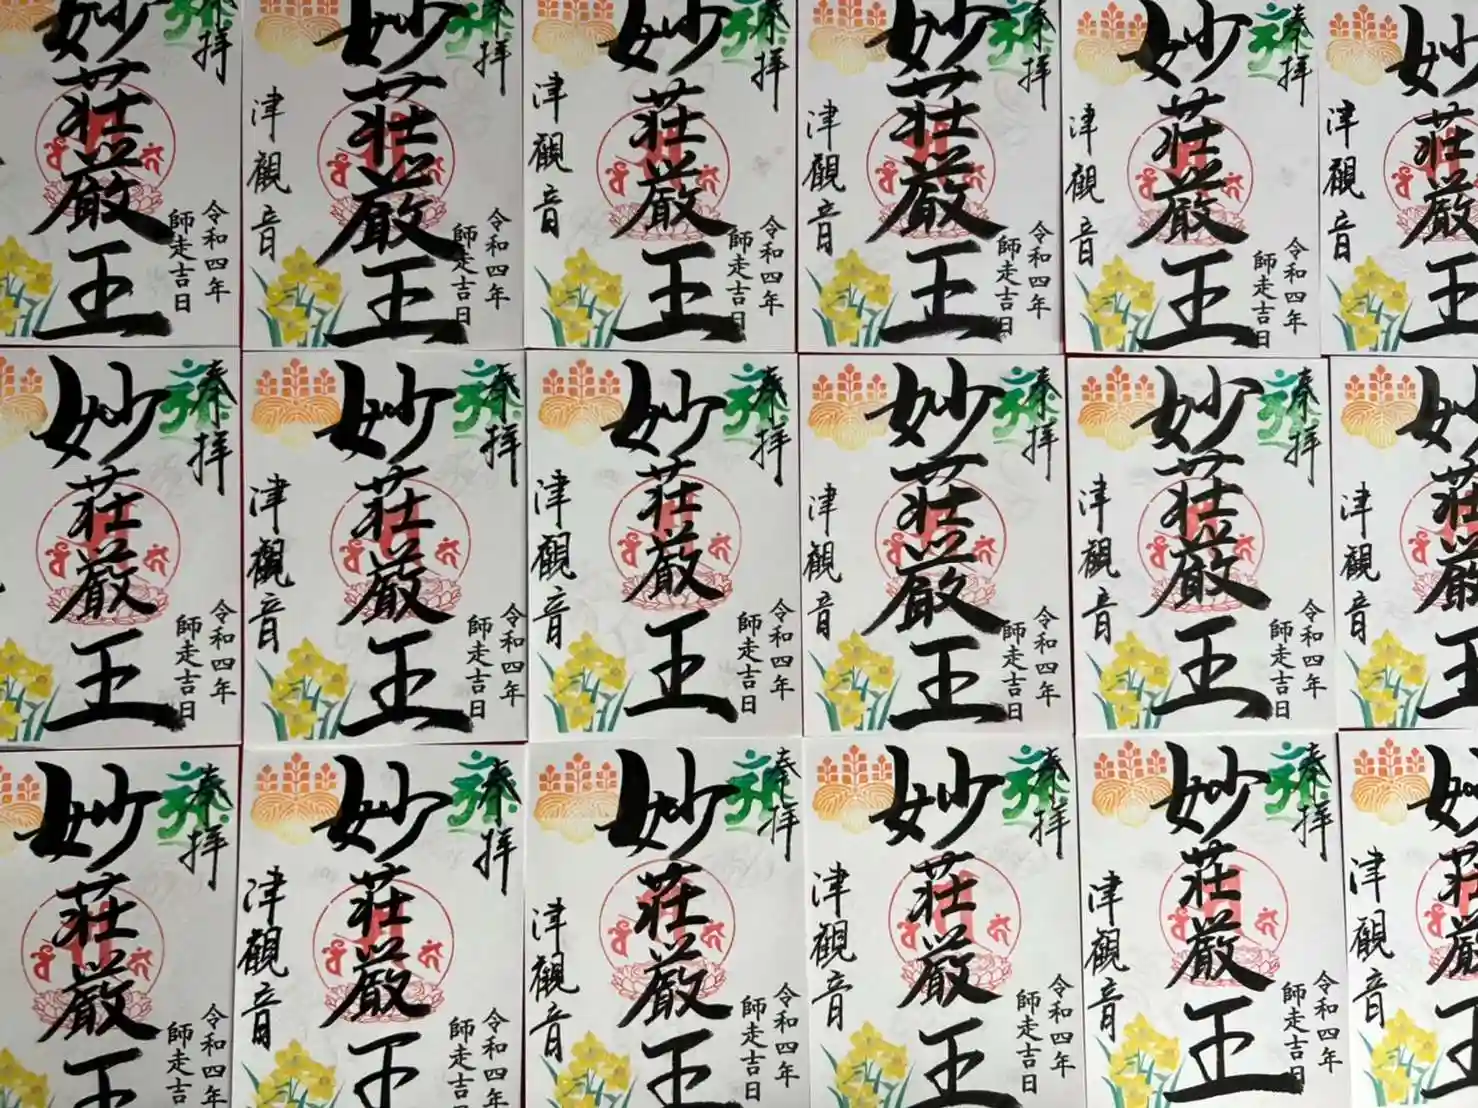 奉拝
妙荘厳王
令和四年
師走吉日
奉拝
妙荘厳王
令和四年
師走吉日
津観音
奉拝
妙荘厳王
令和四年
師走吉日
津観音
奉拝
妙荘厳王
令和四年
師走吉日
津観音
奉拝
妙荘厳王
令和四年
師走吉日
津観音
妙荘厳王
津観音
奉拝
妙荘厳王
令和四年
師走吉日
奉拝
妙荘厳王
令和四年
師走吉日
津観音
奉拝
妙荘厳王
令和四年
師走吉日
津観音
奉拝
妙荘厳王
令和四年
師走吉日
津観音
奉拝
妙荘厳王
令和四年
師走吉日
津観音
妙荘厳王
津観音
奉拝
妙荘厳王
令和四年
師走吉日
奉拝
妙荘厳王
令和四年
師走吉日
津観音
奉拝
妙荘厳王
令和四年
師走吉日
津観音
奉拝
妙荘厳王
令和四年
師走吉日
津観音
奉拝
妙荘厳王
令和四年
師走吉日
津観音
妙荘厳王
津観音